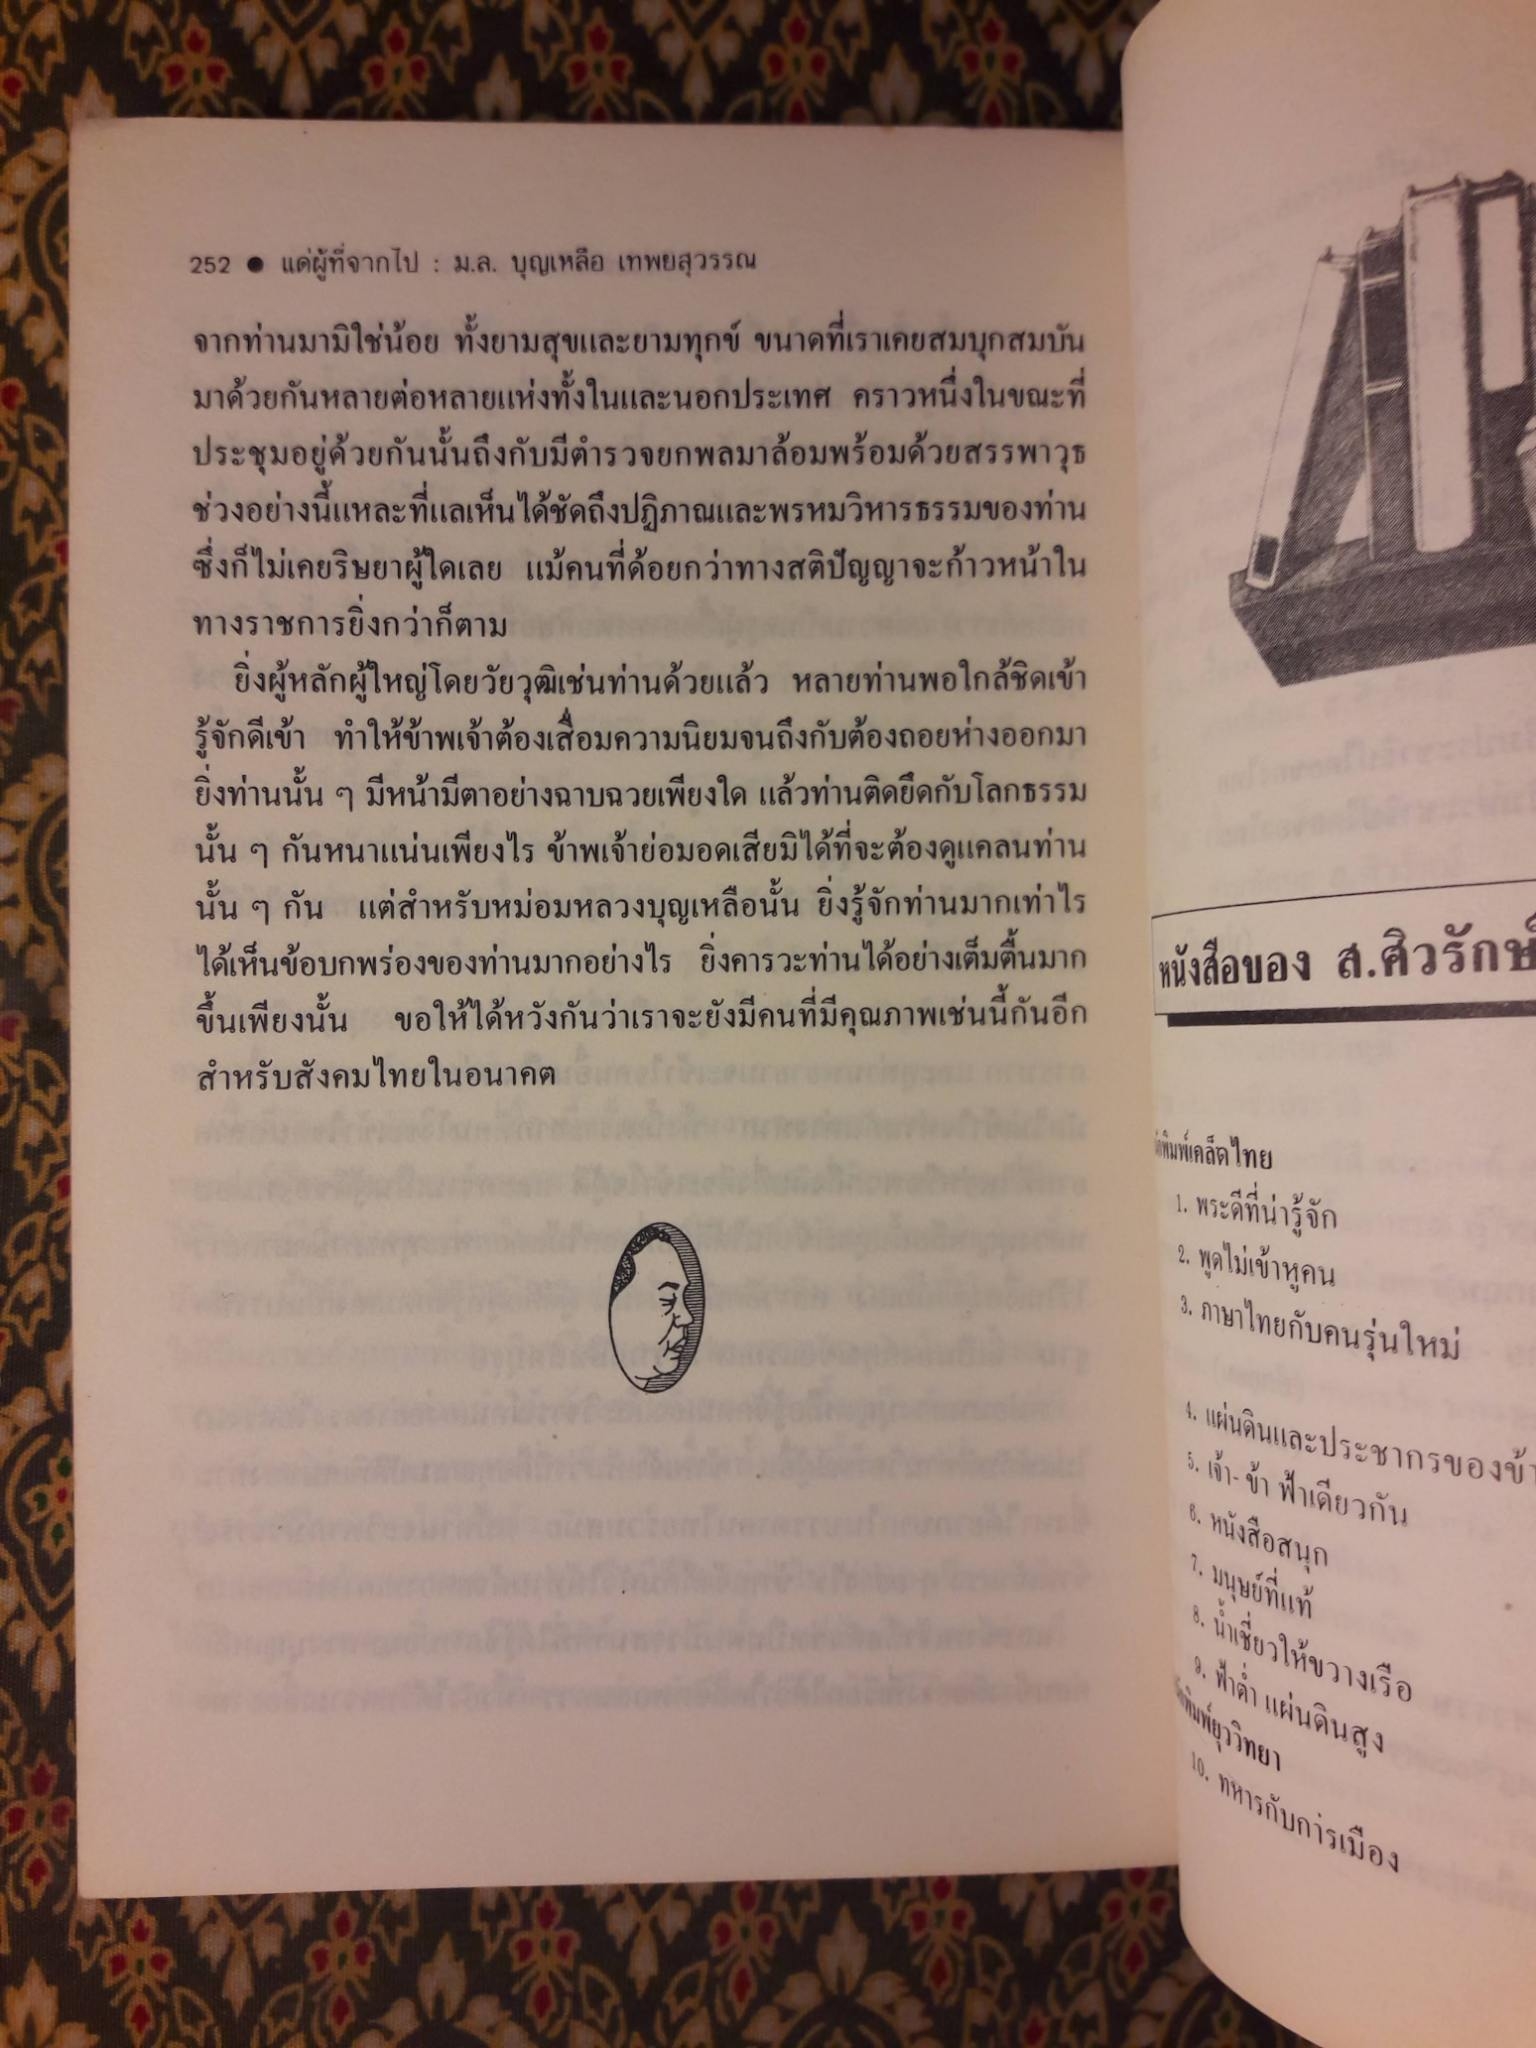 252 ● แด่ผู้ที่จากไป : ม.ล. บุญเหลือ เทพยสุวรรณ
จากท่านมามิใช่น้อย ทั้งยามสุขและยามทุกข์ ขนาดที่เราเคยสมบุกสมบัน
มาด้วยกันหลายต่อหลายแห่งทั้งในและนอกประเทศ คราวหนึ่งในขณะที่
ประชุมอยู่ด้วยกันนั้นถึงกับมีตำรวจยกพลมาล้อมพร้อมด้วยสรรพาวุธ
ช่วงอย่างนี้แหละที่แลเห็นได้ชัดถึงปฏิภาณและพรหมวิหารธรรมของท่าน
ซึ่งก็ไม่เคยริษยาผู้ใดเลย แม้คนที่ด้อยกว่าทางสติปัญญาจะก้าวหน้าใน
ทางราชการยิ่งกว่าก็ตาม
ยิ่งผู้หลักผู้ใหญ่โดยวัยวุฒิเช่นท่านด้วยแล้ว หลายท่านพอใกล้ชิดเข้า
รู้จักดีเข้า ทำให้ข้าพเจ้าต้องเสื่อมความนิยมจนถึงกับต้องถอยห่างออกมา
ยิ่งท่านนั้น ๆ มีหน้ามีตาอย่างฉาบฉวยเพียงใด แล้วท่านติดยึดกับโลกธรรม
นั้น ๆ กันหนาแน่นเพียงไร ข้าพเจ้าย่อมอดเสียมิได้ที่จะต้องดูแคลนท่าน
นั้น ๆ กัน แต่สำหรับหม่อมหลวงบุญเหลือนั้น ยิ่งรู้จักท่านมากเท่าไร
ได้เห็นข้อบกพร่องของท่านมากอย่างไร ยิ่งคารวะท่านได้อย่างเต็มตื้นมาก
ขึ้นเพียงนั้น ขอให้ได้หวังกันว่าเราจะยังมีคนที่มีคุณภาพเช่นนี้กันอีก
สำหรับสังคมไทยในอนาคต
หนังสือของ ส.ศิวรักษ์
พิมพ์เคล็ดไทย
1. พระดีที่น่ารู้จัก
2. พูดไม่เข้าหูคน
3. ภาษาไทยกับคนรุ่นใหม่
4. แผ่นดินและประชากรของข้า
5. เจ้า-ข้า ฟ้าเดียวกัน
6. หนังสือสนุก
7. มนุษย์ที่แท้
8. น้ำเชี่ยวให้ขวางเรือ
9. ฟ้าต่ำ แผ่นดินสูง
พิมพ์ยุววิทยา
10. ทหารกับการเมือง